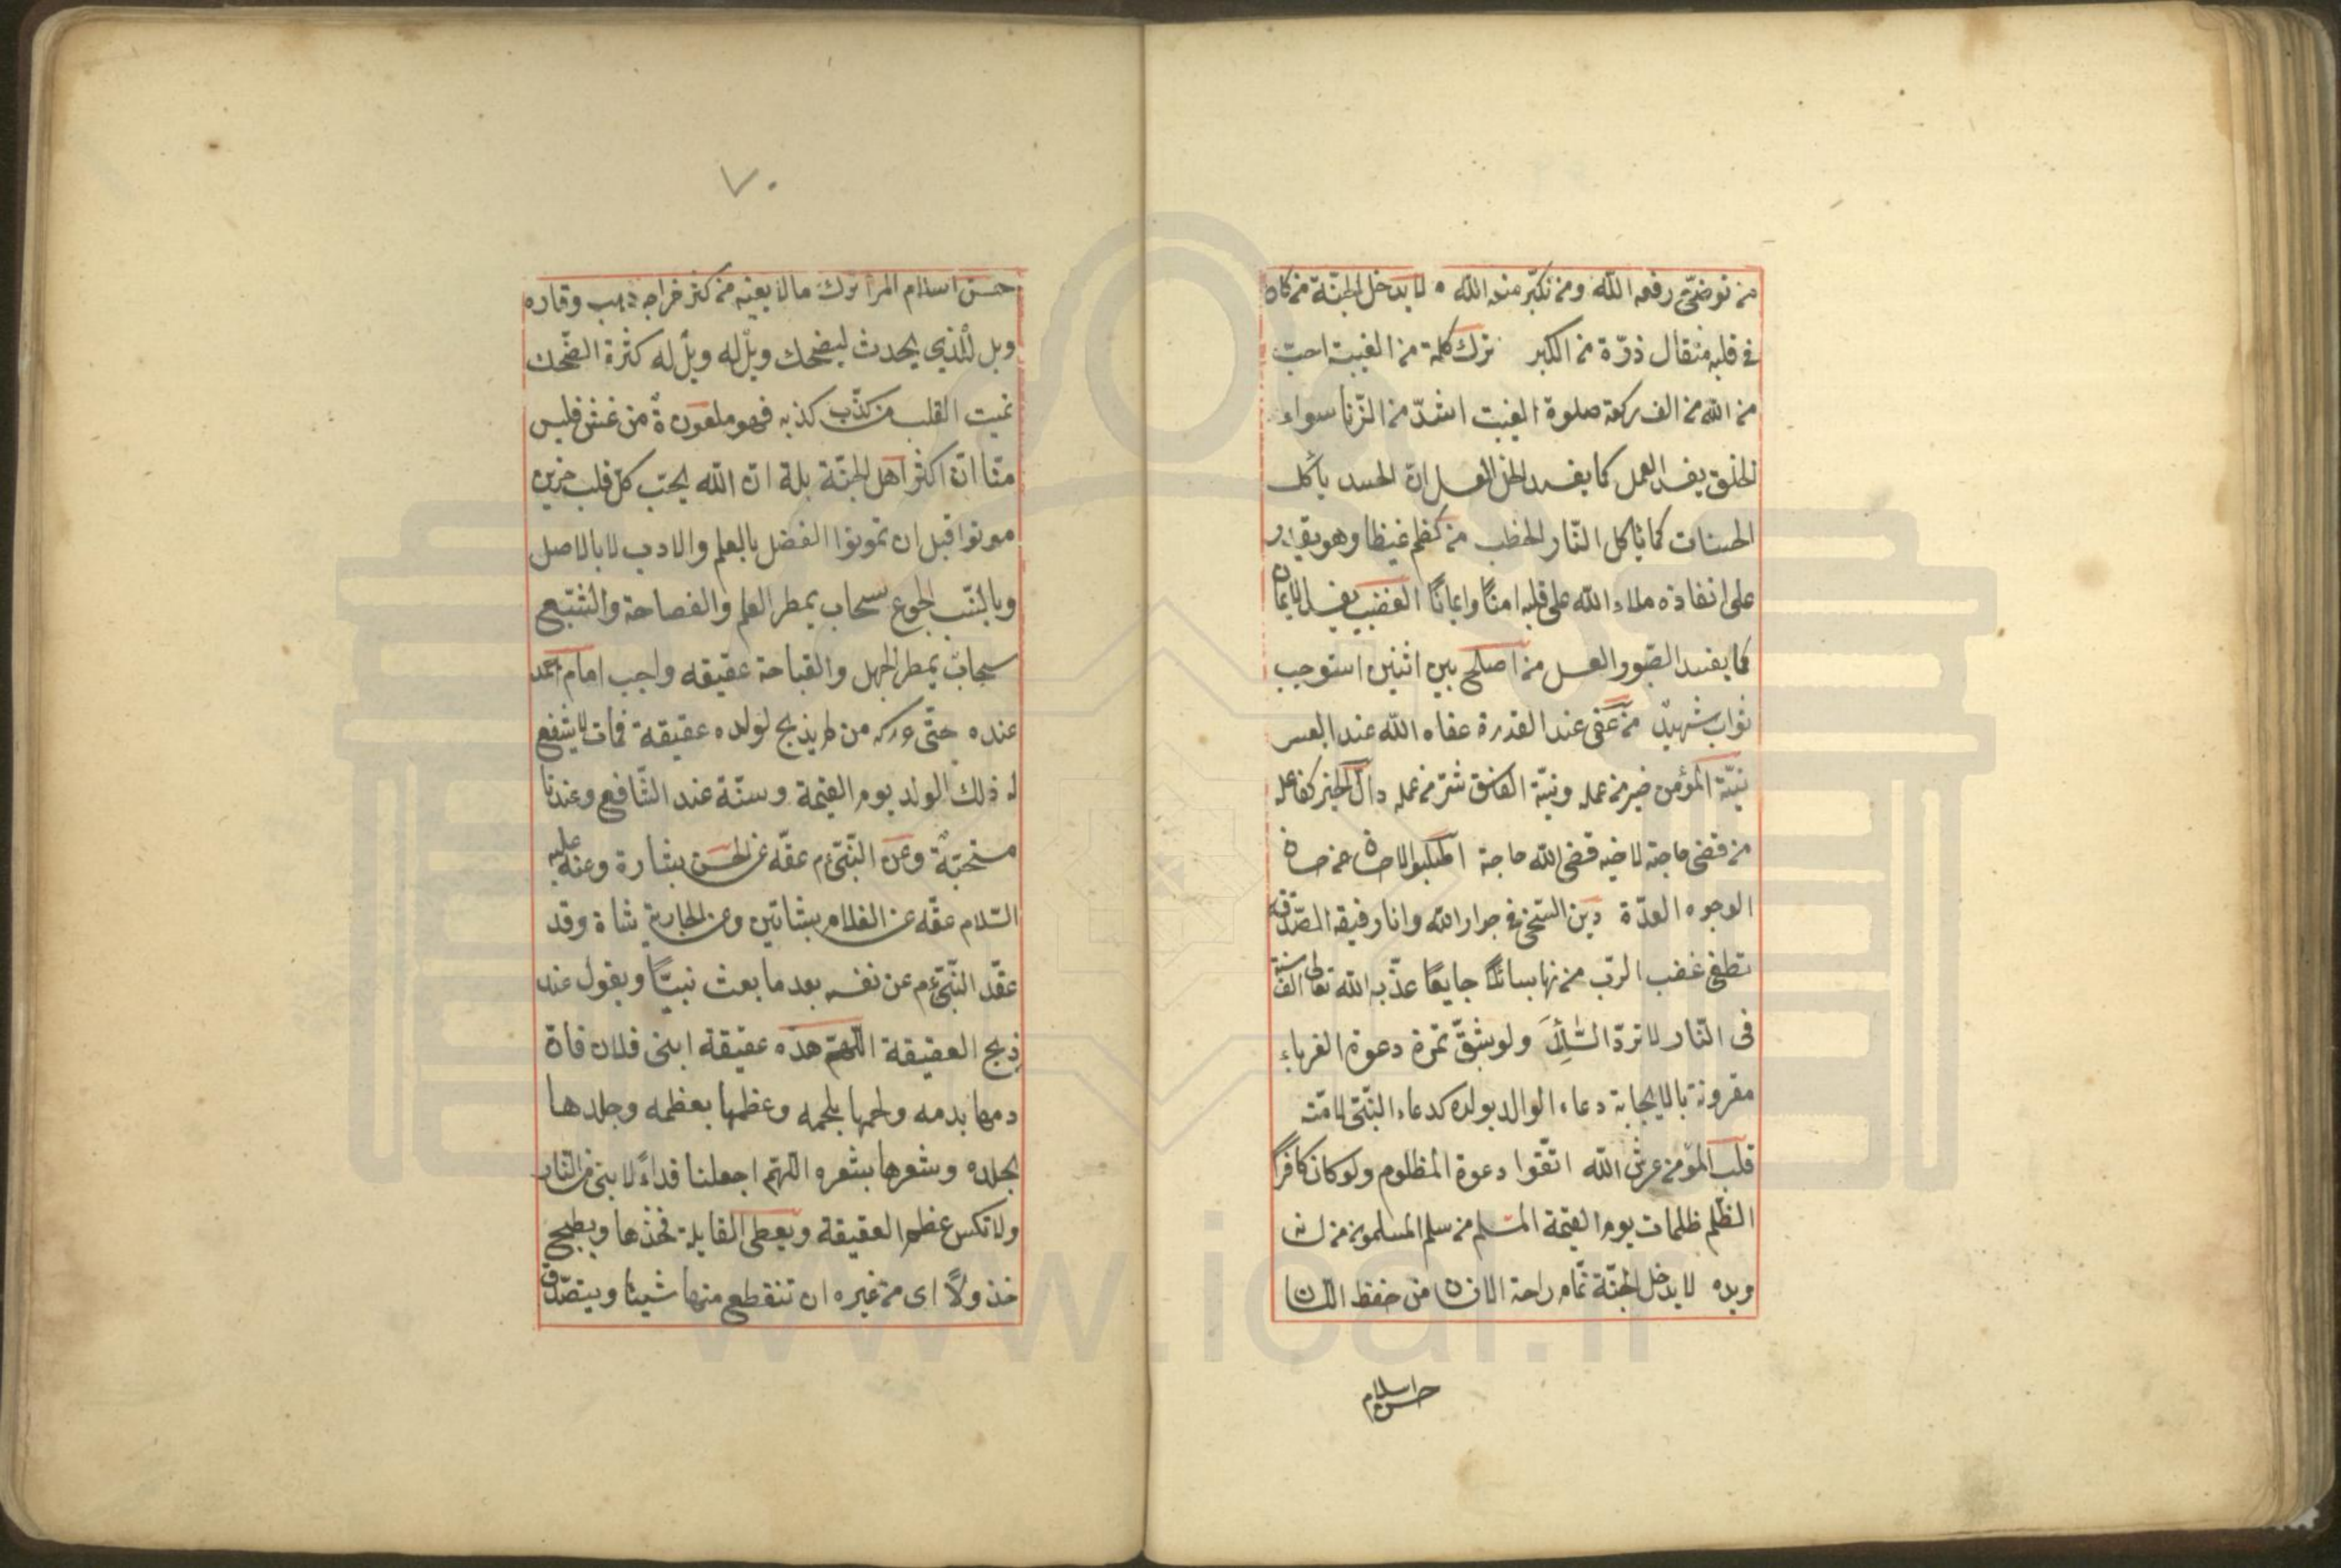 من توضّئ رفعه الله ومن تكبّر منعه الله ٥ لا يدخل الجنّة من كان
فى قلبه مثقال ذرّة من الكبر ترك كلمة من الغيبت احبّ
من الله من الف ركعة صلوة الغيبت اشدّ من الزّنا سواء
الخلق يفسد العمل كما يفسد الخل العسل انّ الحسد يأكل
الحسنات كما تاكل النّار الحطب من كظم غيظا وهو يقدر
على انفاذه ملاء الله على قلبه امنًا وايمانًا الغضب يفسد الايمان
كما يفسد الصّبور العسل من اصلح بين اثنين استوجب
ثواب شهيد من عفى عند القدرة عفاه الله عند العسر
نيّة المؤمن خير من عمله ونيّة الفاسق شرّ من عمله دالّ الخير كفاعله
من قضى حاجة لاخيه قضى الله حاجة اطلبوا الاحسان عن حسان
الوجوه العدّة دين السّخى فى جوار الله وانا رفيقه الصّدقة
تطفئ غضب الربّ من نها سائلًا جايعًا عذّبه الله تعالى الف سنة
فى النّار لا تردّ السّائل ولو بشقّ تمرة دعوة الغرباء
مقرونة بالايجابة دعاء الوالد بولده كدعاء النّبىّ لامّته
قلب المؤمن عرش الله اتّقوا دعوة المظلوم ولو كان كافرًا
الظّلم ظلمات يوم القيمة المسلم من سلم المسلمون من لسانه
ويده لا يدخل الجنّة نمّام راحة الانسان من حفظ اللسان
حسن اسلام
٧٠
حسن اسلام المرأ ترك ما لا يعنيه من كثر
ويل للّذي يحدث ليضحك ويلٌ له ويلٌ له كثرة الضّحك
تميت القلب من كذّب كذبه فهو ملعون من غشّ فليس
منّا انّ اكثر اهل الجنّة بلة انّ الله يحبّ كلّ قلب حزين
موتوا قبل ان تموتوا الفضل بالعلم والادب لا بالاصل
وبالنّسب الجوع سحاب يمطر العلم والفصاحة والشّبع
سحابٌ يمطر الجهل والقباحة عقيقه واجب امام احمد
عنده حتّى من لم يذبح لولده عقيقة فمات لا يشفع
له ذلك الولد يوم القيمة وسنّة عند الشّافع وعندنا
مستحبّةٌ وعن النّبىّ عم عقّه عن الحسن بشارة وعنه عليه
السّلام عقّه عن الغلام بشاتين وعن الجارية شاة وقد
عقّد النّبىّ عم عن نفسه بعد ما بعث نبيًّا ويقول عند
ذبح العقيقة اللّهمّ هذه عقيقة ابنى فلان فانّ
دمها بدمه ولحمها بلحمه وعظمها بعظمه وجلدها
بجلده وشعرها بشعره اللّهمّ اجعلنا فداءً لابنى من النّار
ولا تكس عظم العقيقة ويعطى القابلة فخذها ويطبخ
خذولًا اى من غيره ان تنقطع منها شيئا ويتصدّق